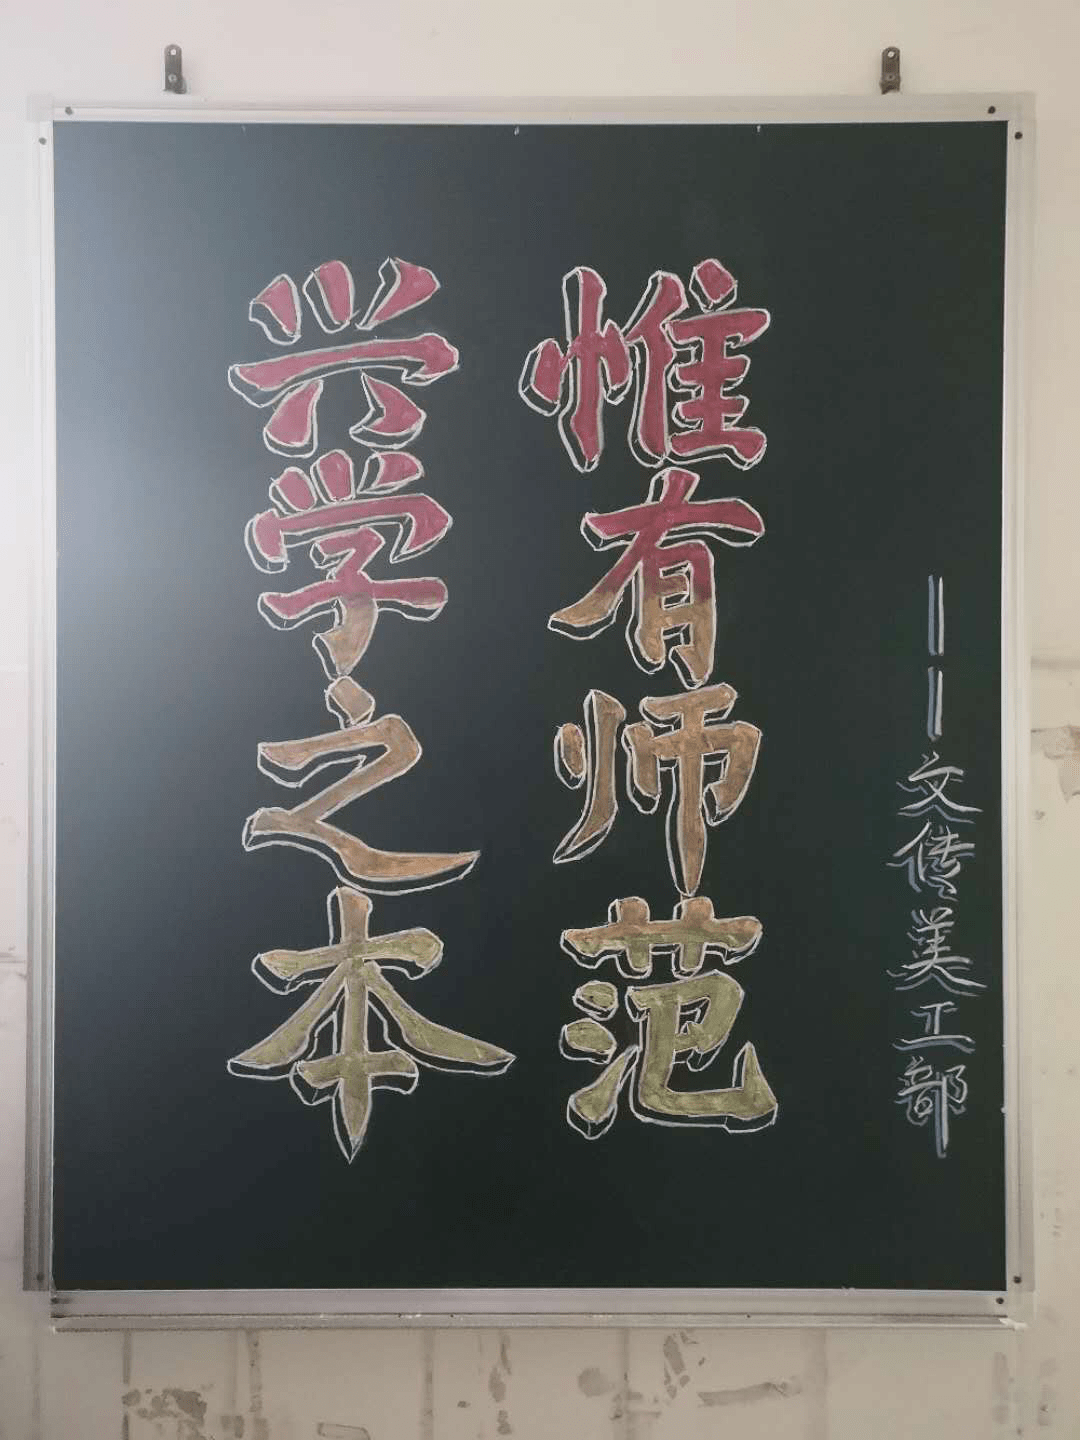 兴学之本
惟有师范
——文传美工部